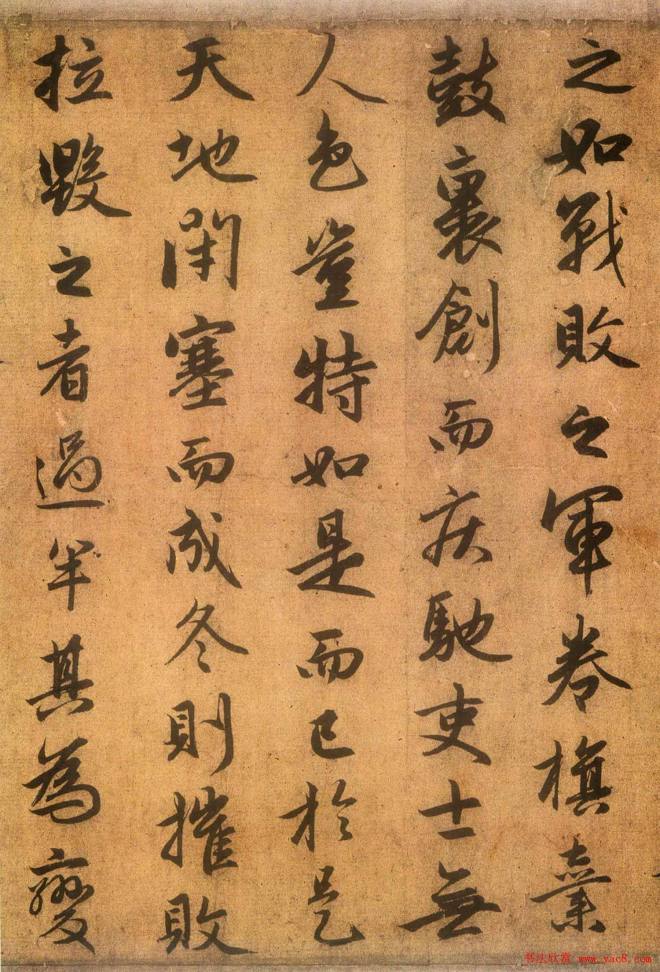 之如戰敗之軍卷旗棄
鼓裹創而疾馳吏士無
人色豈特如是而已於是
天地閉塞而成冬則摧敗
拉毀之者過半其為變
书法欣赏 www.yac8.com